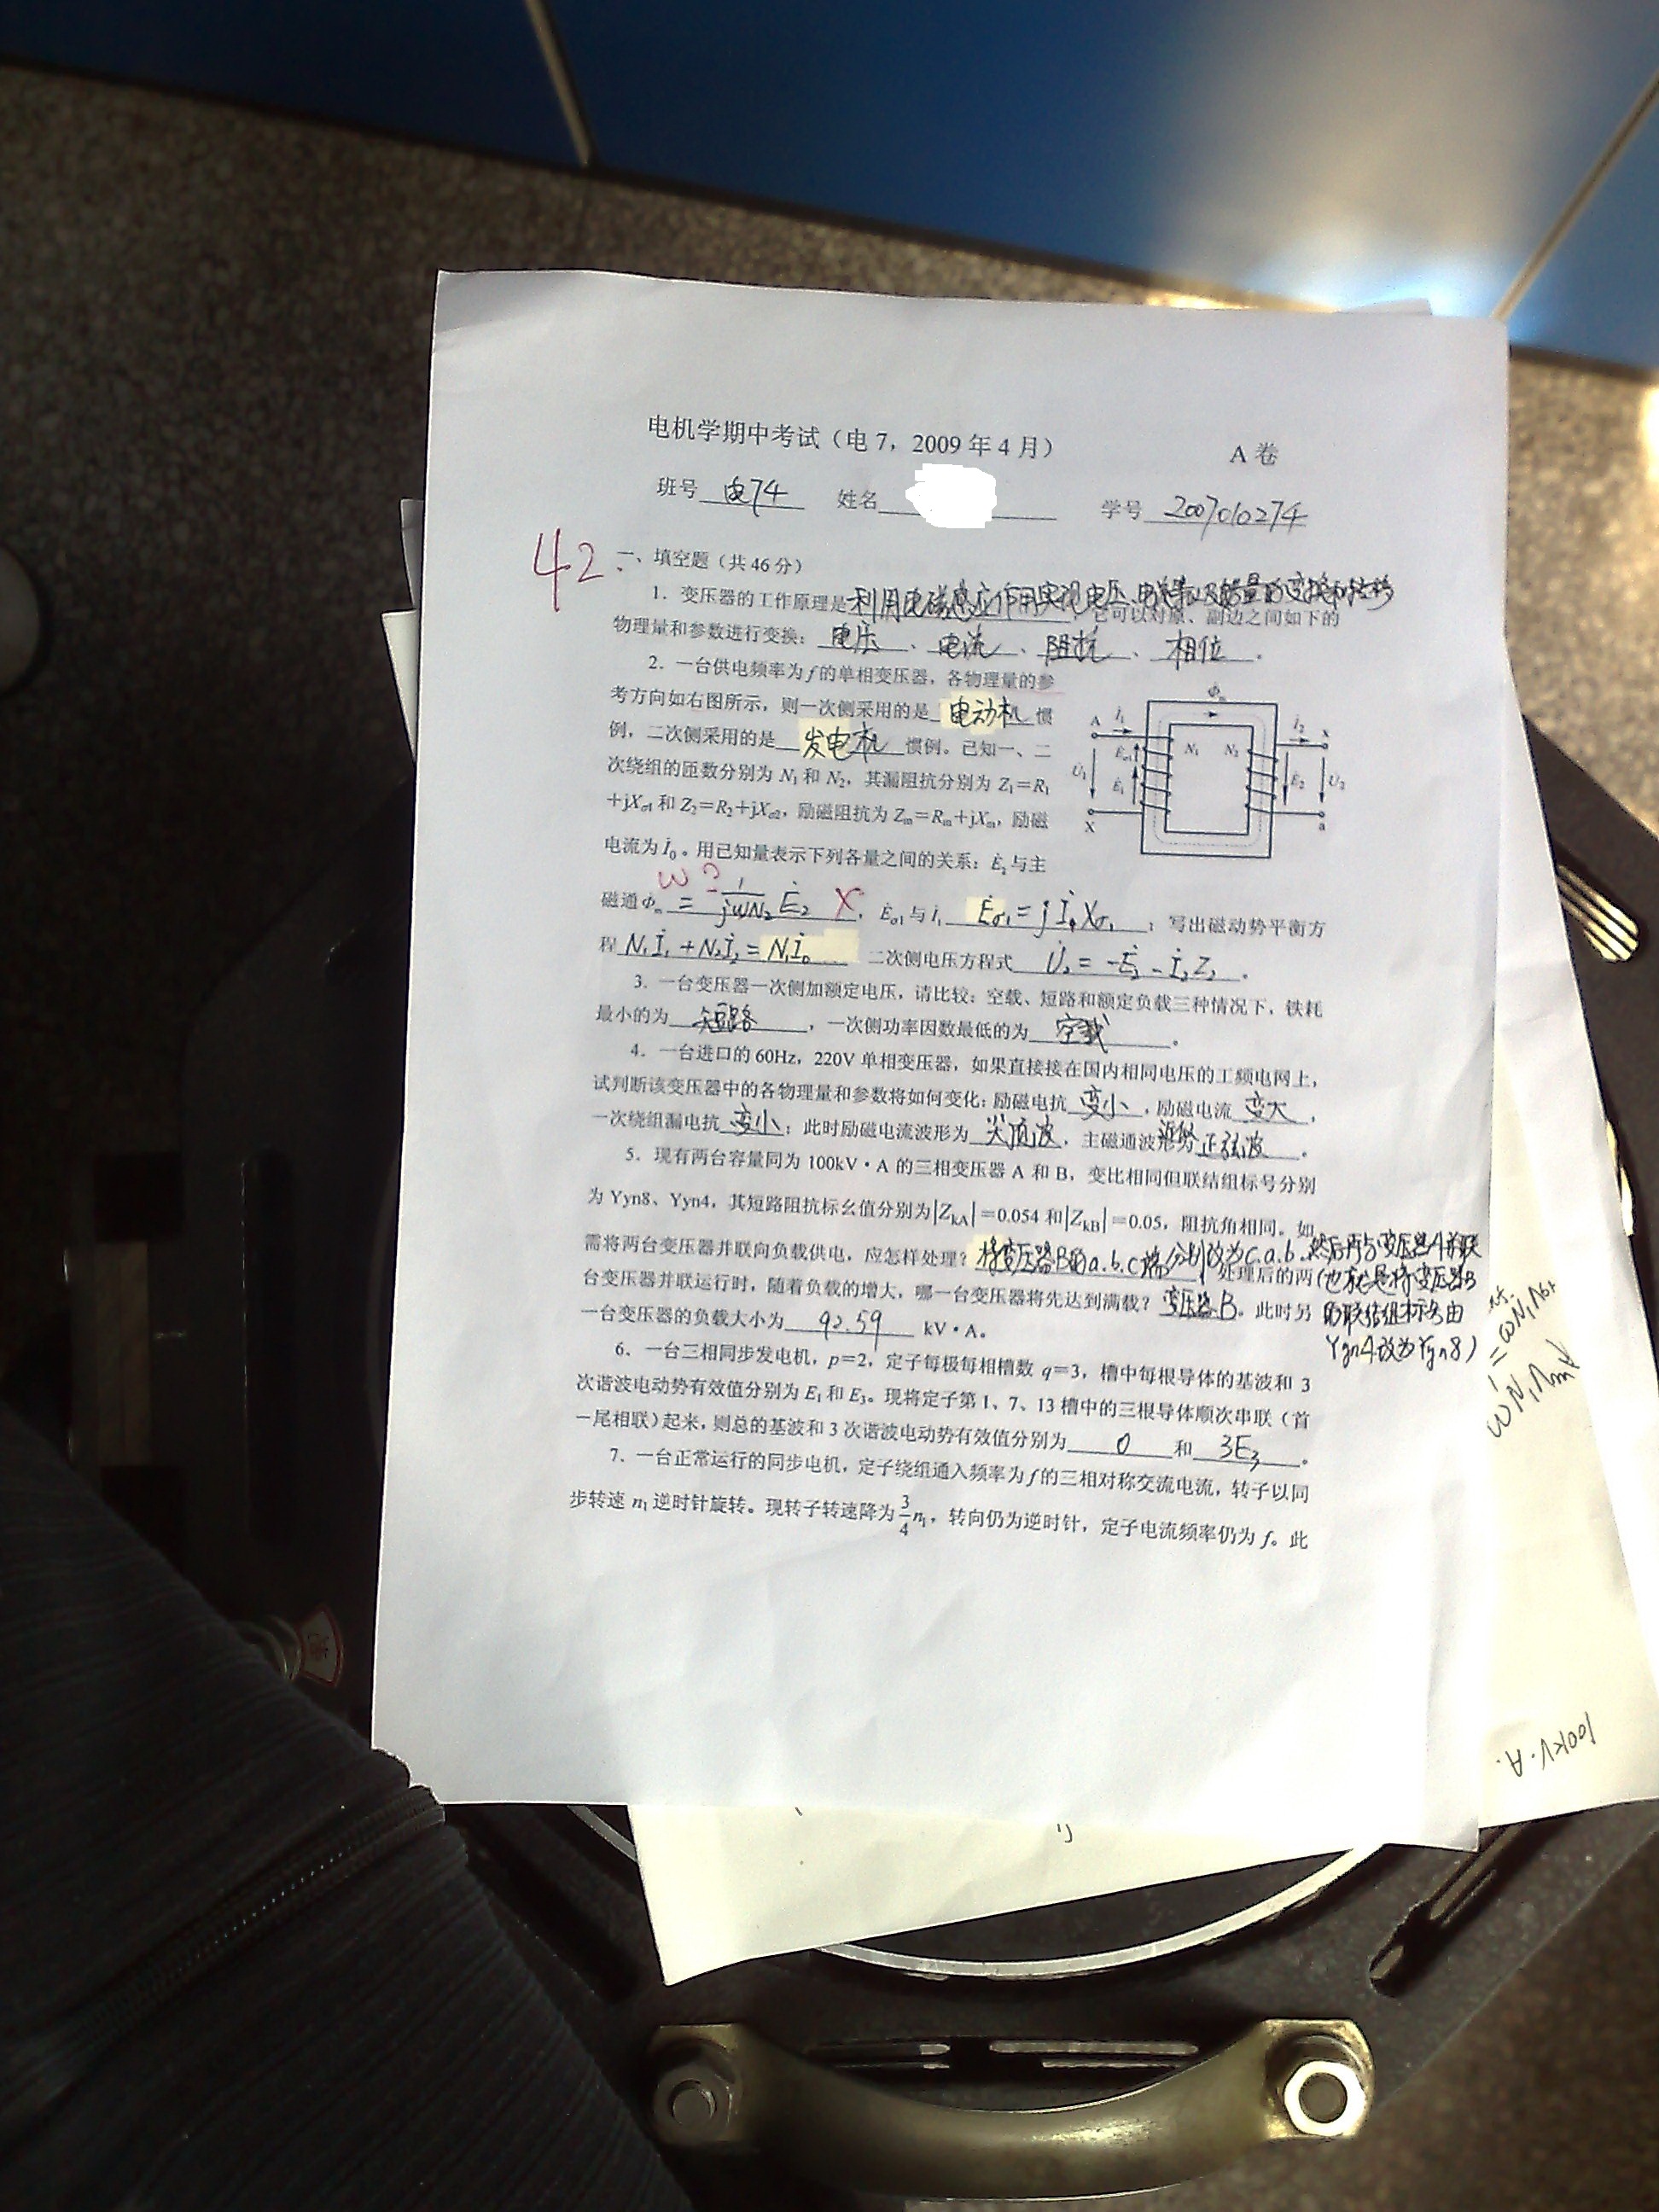 电机学期中考试（电 7，2009 年 4 月） A 卷
班号 电74 姓名 学号 2007010274
42
一、填空题（共 46 分）
1．变压器的工作原理是利用电磁感应作用实现电压、电流以及能量的变换和转移，它可以对原、副边之间如下的
物理量和参数进行变换：电压、电流、阻抗、相位。
2．一台供电频率为 f 的单相变压器，各物理量的参
考方向如右图所示，则一次侧采用的是 电动机 惯
例，二次侧采用的是 发电机 惯例。已知一、二
次绕组的匝数分别为 N₁ 和 N₂，其漏阻抗分别为 Z₁=R₁
+jXσ1 和 Z₂=R₂+jXσ2，励磁阻抗为 Zm=Rm+jXm，励磁
电流为 İ₀。用已知量表示下列各量之间的关系：Ė₂ 与主
磁通 Φ̇m = 1/(jωN₂) Ė₂ ×，Ėσ1 与 İ₁ Ėσ1 = jİ₁Xσ1；写出磁动势平衡方
程 N₁İ₁+N₂İ₂=N₁İ₀ 二次侧电压方程式 U̇₂ = -Ė₂ - İ₂Z₂。
Φ̇m
A İ₁ İ₂ x
N₁ N₂
U̇₁ Ėσ1 Ė₁ Ė₂ U̇₂
X a
3．一台变压器一次侧加额定电压，请比较：空载、短路和额定负载三种情况下，铁耗
最小的为 短路，一次侧功率因数最低的为 空载。
4．一台进口的 60Hz，220V 单相变压器，如果直接接在国内相同电压的工频电网上，
试判断该变压器中的各物理量和参数将如何变化：励磁电抗 变小，励磁电流 变大，
一次绕组漏电抗 变小；此时励磁电流波形为 尖顶波，主磁通波形为 正弦波。
5．现有两台容量同为 100kV·A 的三相变压器 A 和 B，变比相同但联结组标号分别
为 Yyn8、Yyn4，其短路阻抗标幺值分别为|ZkA|=0.054 和|ZkB|=0.05，阻抗角相同。如
需将两台变压器并联向负载供电，应怎样处理？将变压器B的a.b.c端分别改为c.a.b.然后再与变压器A并联
（也就是将变压器B
的联结组标号由
Yyn4改为Yyn8）
处理后的两
台变压器并联运行时，随着负载的增大，哪一台变压器将先达到满载？变压器B。此时另
一台变压器的负载大小为 92.59 kV·A。
6、一台三相同步发电机，p=2，定子每极每相槽数 q=3，槽中每根导体的基波和 3
次谐波电动势有效值分别为 E₁ 和 E₃。现将定子第 1、7、13 槽中的三根导体顺次串联（首
—尾相联）起来，则总的基波和 3 次谐波电动势有效值分别为 0 和 3E₃。
7．一台正常运行的同步电机，定子绕组通入频率为 f 的三相对称交流电流，转子以同
步转速 n₁ 逆时针旋转。现转子转速降为 3/4 n₁，转向仍为逆时针，定子电流频率仍为 f。此
100kV·A.